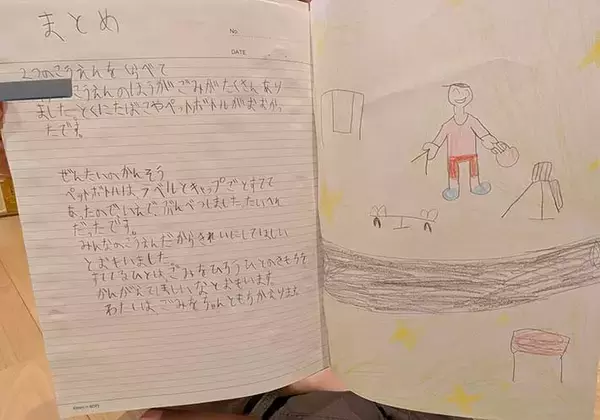 まとめ
NO.
DATE
2つのこうえんをくらべて
こうえんのほうがごみがたくさんあり
ました。とくにたばこやペットボトルがおおかっ
たです。
ぜんたいのかんそう
ペットボトルは、ラベルとキャップごとすてて
あったのでいえで、ぶんべつしました。たいへん
だったです。
みんなのこうえんだからきれいにしてほしい
とおもいました。
すてるひとは、ごみをひろうひとのきもちを
かんがえてほしいなとおもいます。
わたしは、ごみをちゃんともちかえります。